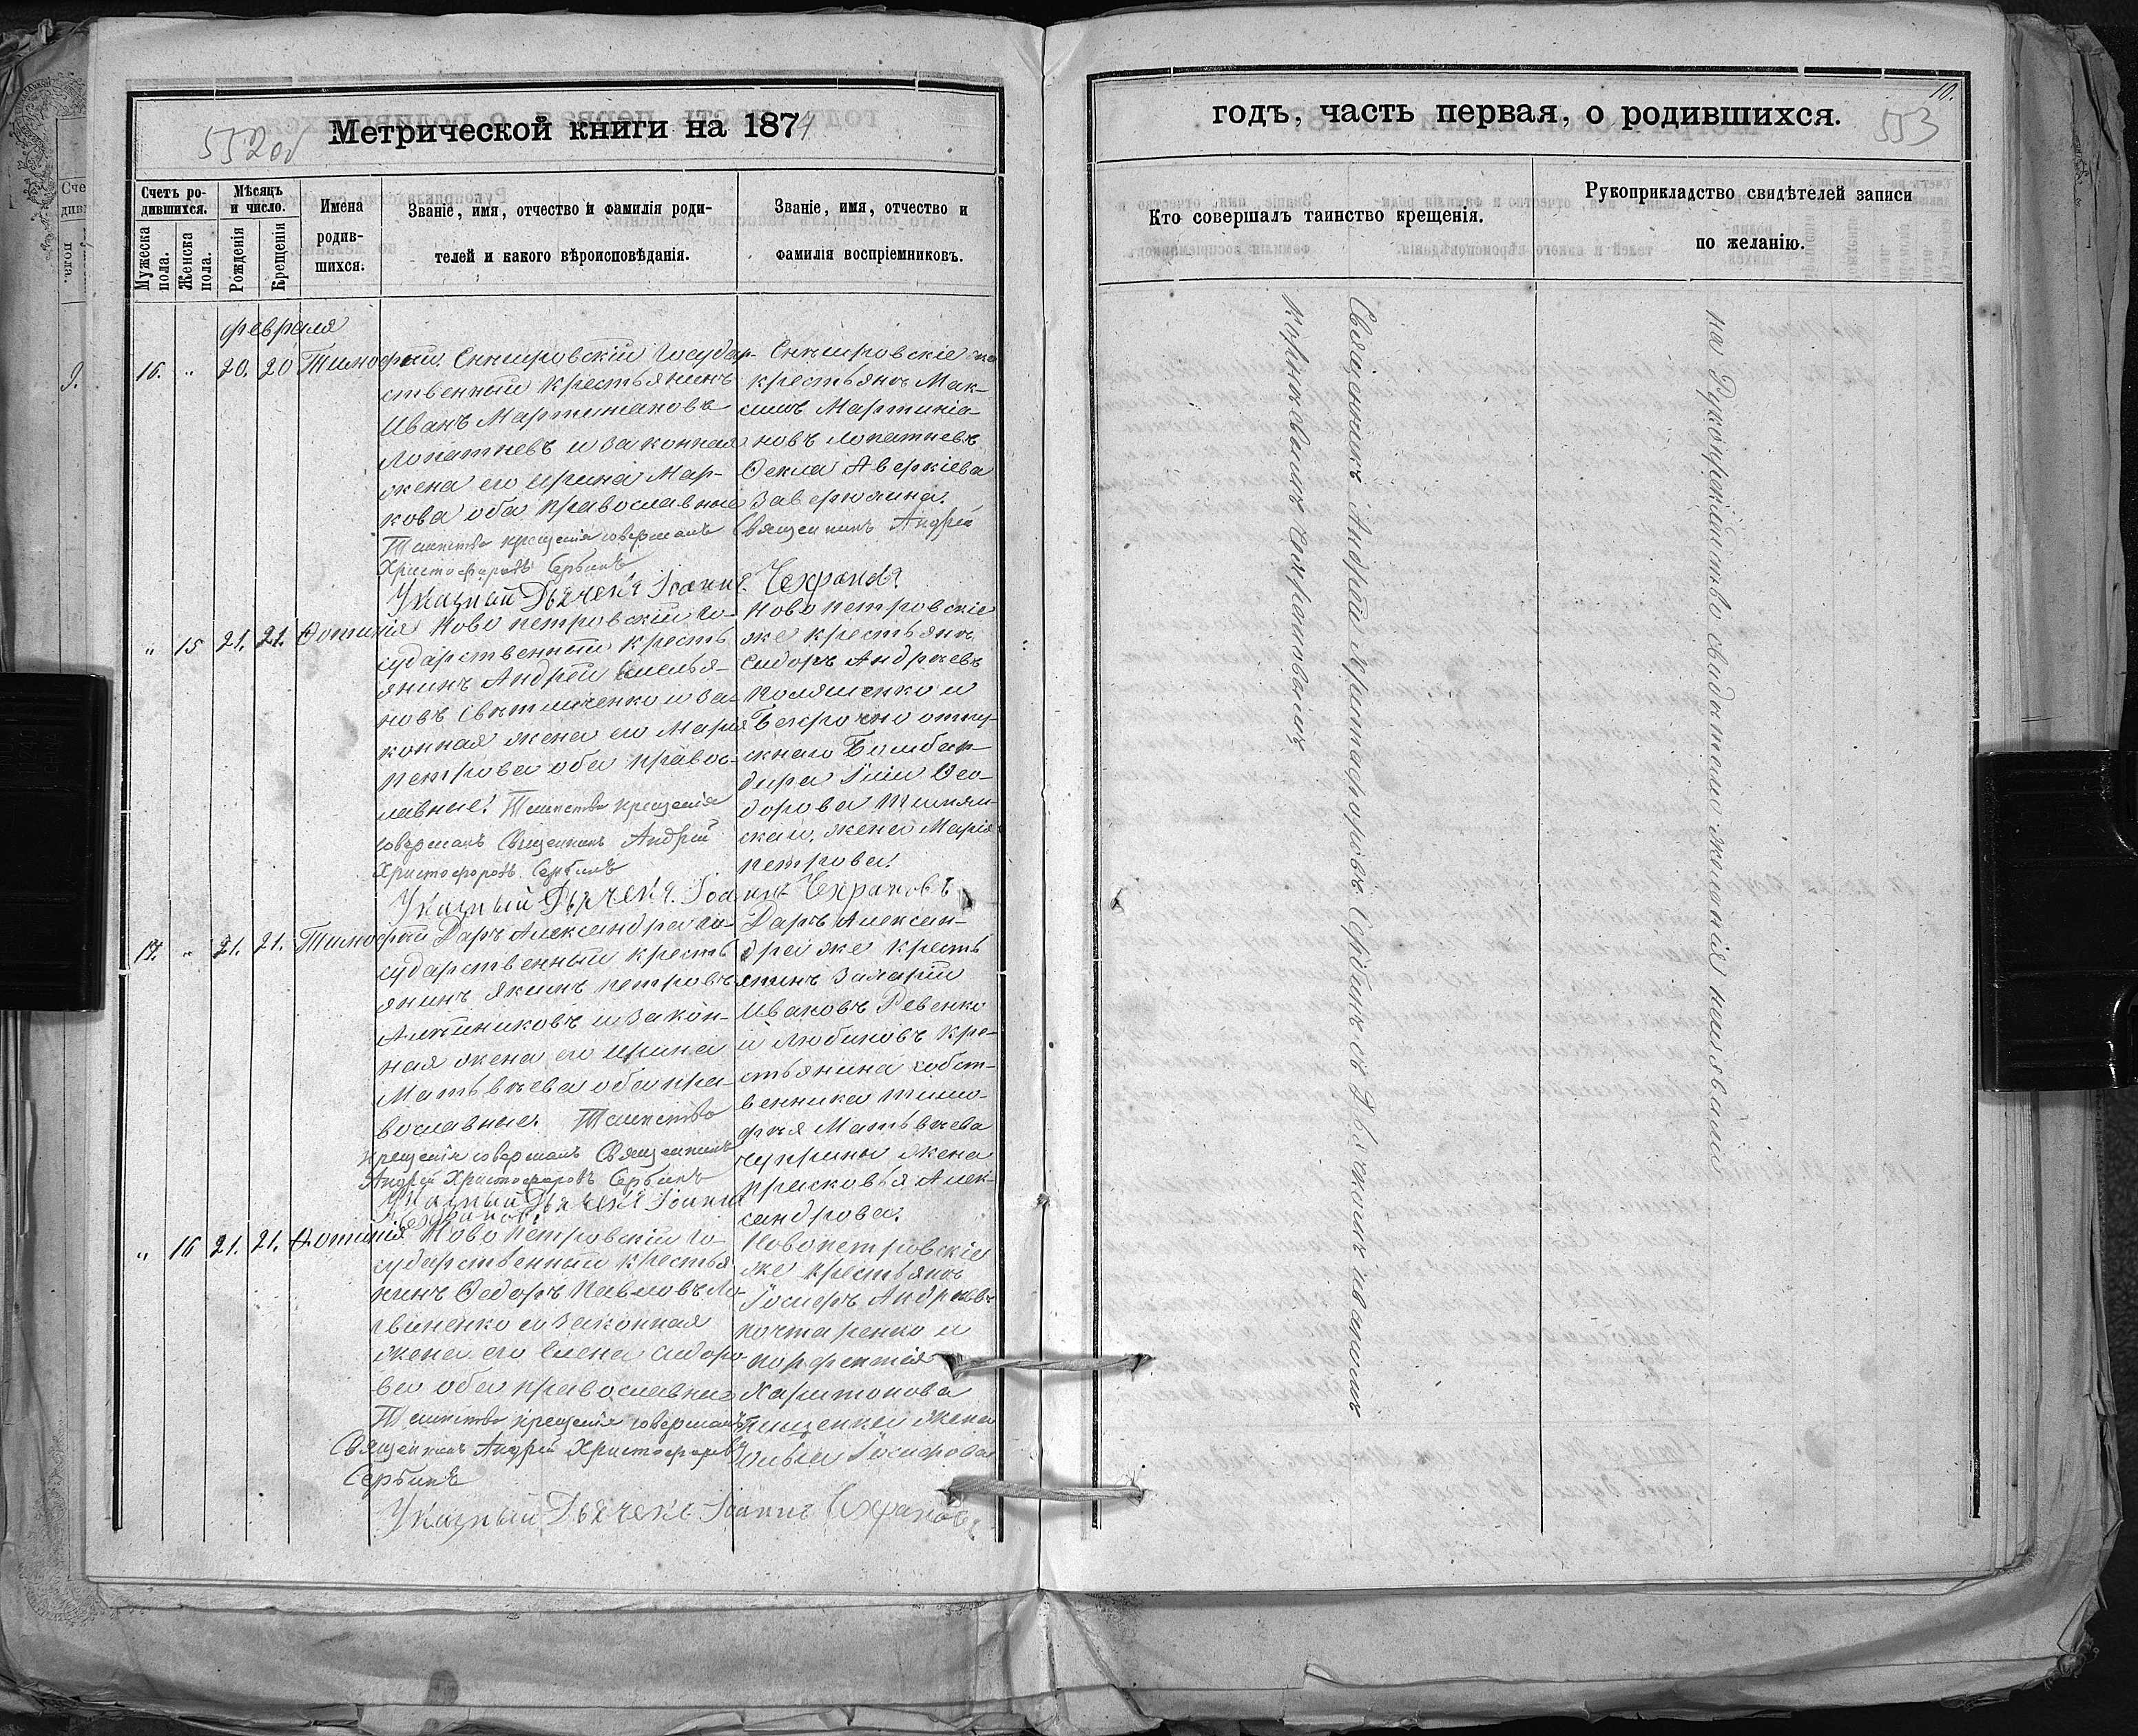 552 об
Метрической книги на 1874
Счетъ ро-
дившихся.
Мѣсяцъ
и число.
Имена
родив-
шихся.
Званіе, имя, отчество и фамилія роди-
телей и какого вѣроисповѣданія.
Званіе, имя, отчество и
фамилія воспріемниковъ.
Мужеска
пола.
Женска
пола.
Рожденія
Крещенія
февраля
16. " 20. 20 Тимофей.
Государ-
ственный крестьянинъ
Иванъ
и законная
жена его Ирина Мар-
кова оба православные
Таинство крещенія совершалъ Священникъ Андрей
Христофоровъ Сербинъ
Указный Дьячекъ Іоаннъ Чехрановъ
же
крестьяне Мак-
симъ Мартиніа-
новъ
Фекла Аверкіева
" 15 21. 21. Фотинія
Ново петровскій го-
сударственный кресть
янинъ Андрей Емелья-
новъ и за-
конная жена его Марія
петрова оба правос-
лавные. Таинство крещенія
совершалъ Священникъ Андрей
Христофоровъ Сербинъ
Указный Дьячекъ Іоаннъ Чехрановъ
Ново петровскіе
же крестьяне
Сидоръ Андреевъ
и
отпу-
скнаго Бомбар-
дира Фео-
дорова
жена Марія
петрова.
17. " 21. 21. Тимофей
Даръ Александра го-
сударственный кресть
янинъ Якимъ петровъ
и закон-
ная жена его Ирина
Матвѣева оба пра-
вославные. Таинство
крещенія совершалъ Священникъ
Андрей Христофоровъ Сербинъ
Указный Дьячекъ Іоаннъ
Чехрановъ
Даръ Алексан-
дра же кресть
янинъ
Ивановъ Ревенко
и кре-
стьянина собст-
венника Тимо-
фея Матвѣева
чуприны жена
прасковья Алек-
сандрова.
" 16 21. 21. Фотинія
Ново петровскій го-
сударственный крестья
нинъ Федоръ Павловъ Ло-
гвиненко и законная
жена его Елена Сидоро-
ва оба православные
Таинство крещенія совершалъ
Священникъ Андрей Христофоровъ
Сербинъ
Указный Дьячекъ Іоаннъ Чехрановъ
Новопетровскіе
же крестьяне
Іосифъ Андреевъ
почтаренко и
Харитонова
жена
Іосифова
10.
годъ, часть первая, о родившихся.
553
Кто совершалъ таинство крещенія.
Рукоприкладство свидѣтелей записи
по желанію.
Священникъ Андрей Христофоровъ Сербинъ съ Дьячкомъ Иваномъ
Чехрановымъ
на Рукоприкладство свидѣтели желанія неизъявили